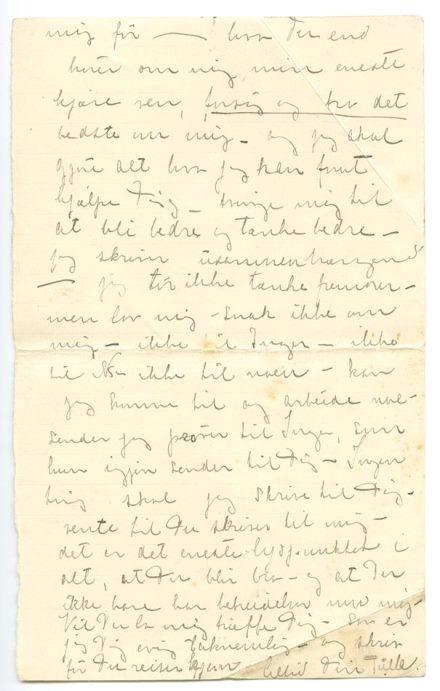 mig för — hvor Du end
hører om mig, min eneste
kjære ven, forsøg og tro det
bedste om mig – og jeg skal
gjøre alt hvor jeg kan for at
hjælpe Dig – tvinge mig til
at bli bedre og tænke bedre –
jeg skriver usammenhængende
— jeg tør ikke tænke fremover –
men lov mig – snak ikke om
mig – ikke til Inger – ikke
til N– ikke til noen – kan
jeg komme til og arbeide noe –
sender jeg prøver til Inger, som
hun igjen sender til Dig – Ingen
ting skal jeg skrive til Dig –
vente til Du skriver til mig –
det er det eneste lyspunktet i
alt, at Du blir bra – og at Du
ikke bare har bebreidelser mod mig –
Vil Du la mig træffe Dig – Som er
jeg Dig evig taknemlig – og skriv
før Du reiser hjem – Altid Din Tulla.